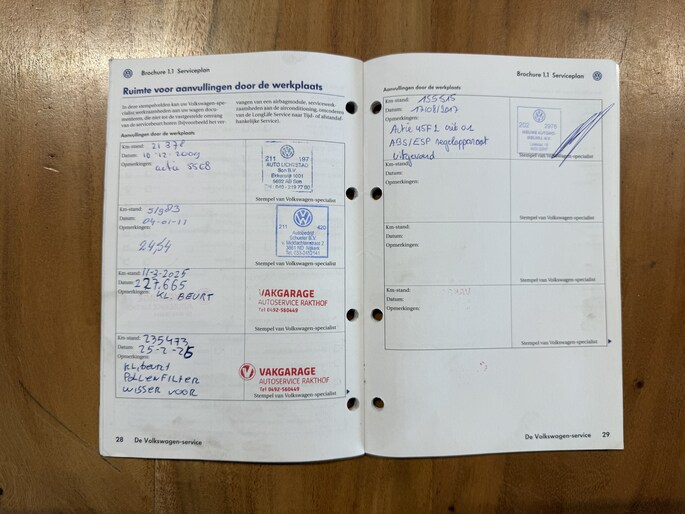 Brochure 1.1 Serviceplan
Ruimte voor aanvullingen door de werkplaats
In deze stempelvelden kan uw Volkswagen-spe-
cialist werkzaamheden aan uw wagen docu-
menteren, die niet tot de vastgestelde omvang
van de servicebeurt horen (bijvoorbeeld het ver-
vangen van een airbagmodule, servicewerk-
zaamheden aan de airconditioning, omcoderen
van de LongLife Service naar Tijd- of afstandaf-
hankelijke Service).
Aanvullingen door de werkplaats
Km-stand: 21 878
Datum: 10-12-2009
Opmerkingen: actie 55C8
211 187
AUTO LICHTSTAD
Son B.V.
Ekkersrijt 1031
5692 AB Son
Stempel van Volkswagen-specialist
Km-stand: 51983
Datum: 04-01-11
Opmerkingen:
2454
211
Autobedrijf
Stempel van Volkswagen-specialist
Km-stand: 11-2-2025
Datum: 227,665
Opmerkingen: KL. BEURT
VAKGARAGE
AUTOSERVICE RAKTHOF
Tel 0492-560449
Stempel van Volkswagen-specialist
Km-stand: 235473
Datum: 25-2-26
Opmerkingen:
KL. beurt
POLLENFILTER
WISSER VOOR
VAKGARAGE
AUTOSERVICE RAKTHOF
Tel 0492-560449
Stempel van Volkswagen-specialist
28 De Volkswagen-service
Brochure 1.1 Serviceplan
Aanvullingen door de werkplaats
Km-stand: 155515
Datum: 17/08/2017
Opmerkingen:
Actie 45F2 crit 01
ABS/ESP regelapparaat
uitgevoerd
Stempel van Volkswagen-specialist
Km-stand:
Datum:
Opmerkingen:
Stempel van Volkswagen-specialist
Km-stand:
Datum:
Opmerkingen:
Stempel van Volkswagen-specialist
Km-stand:
Datum:
Opmerkingen:
Stempel van Volkswagen-specialist
De Volkswagen-service 29